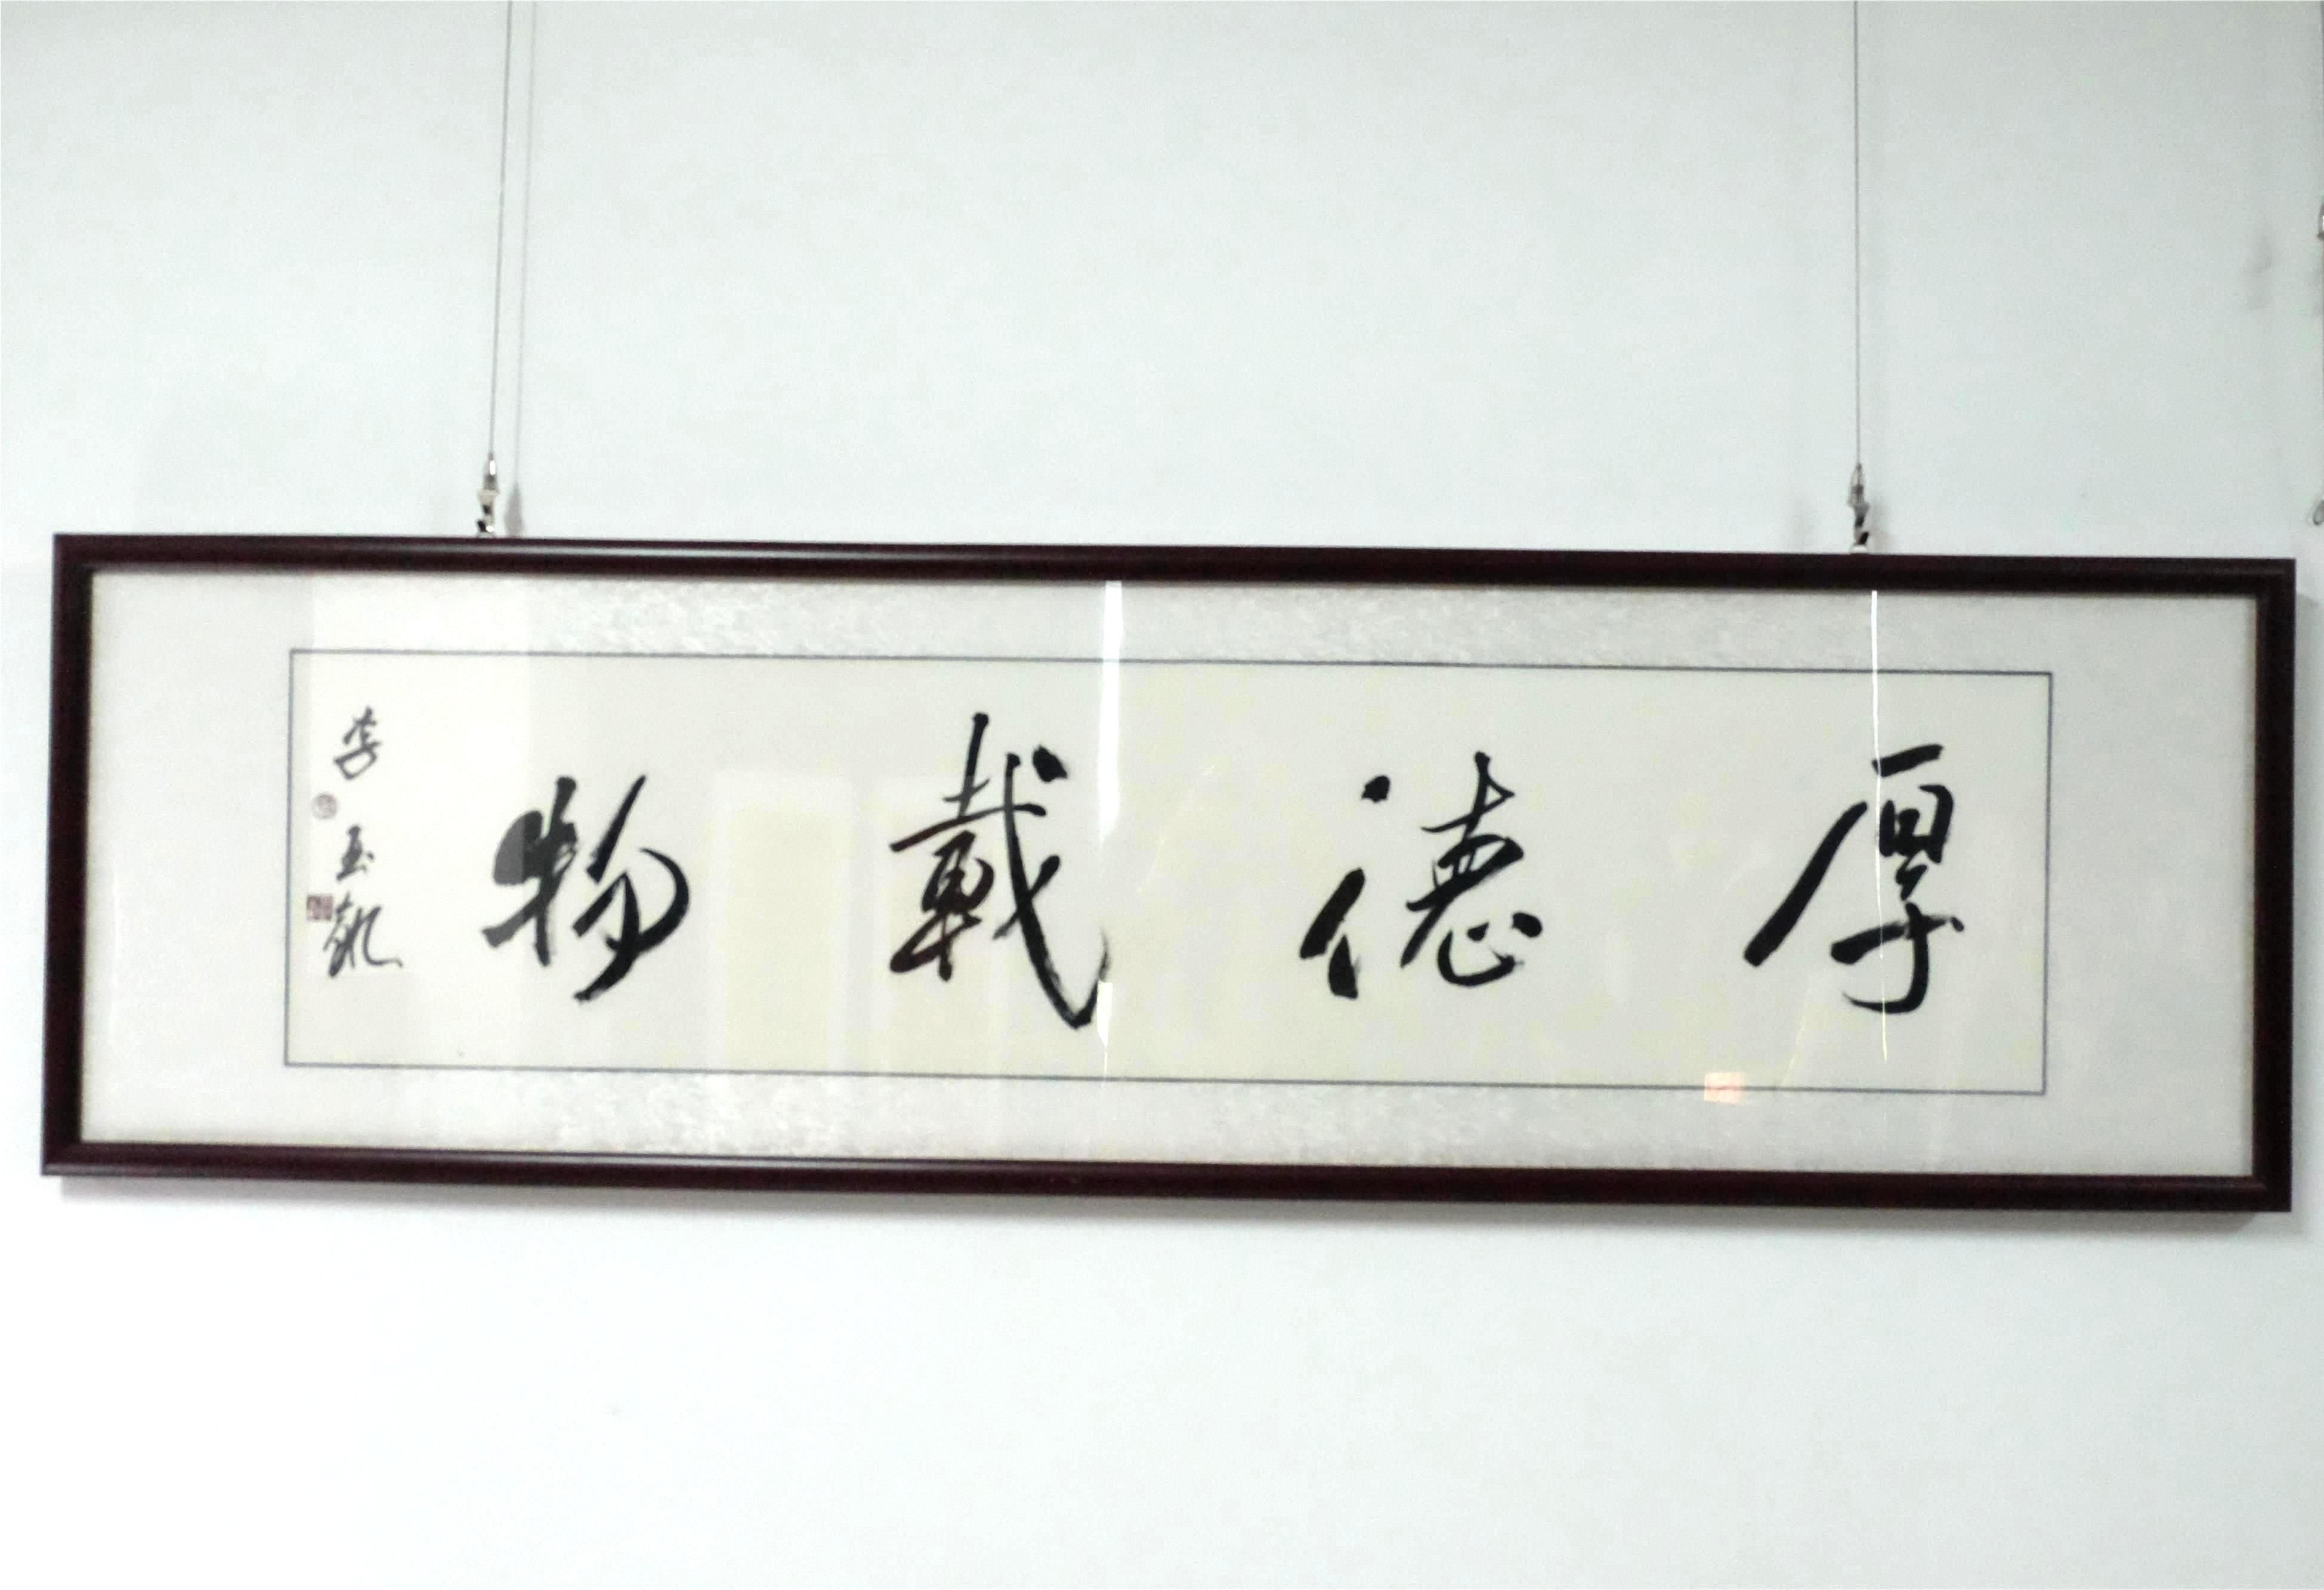 厚德載物
李玉凱